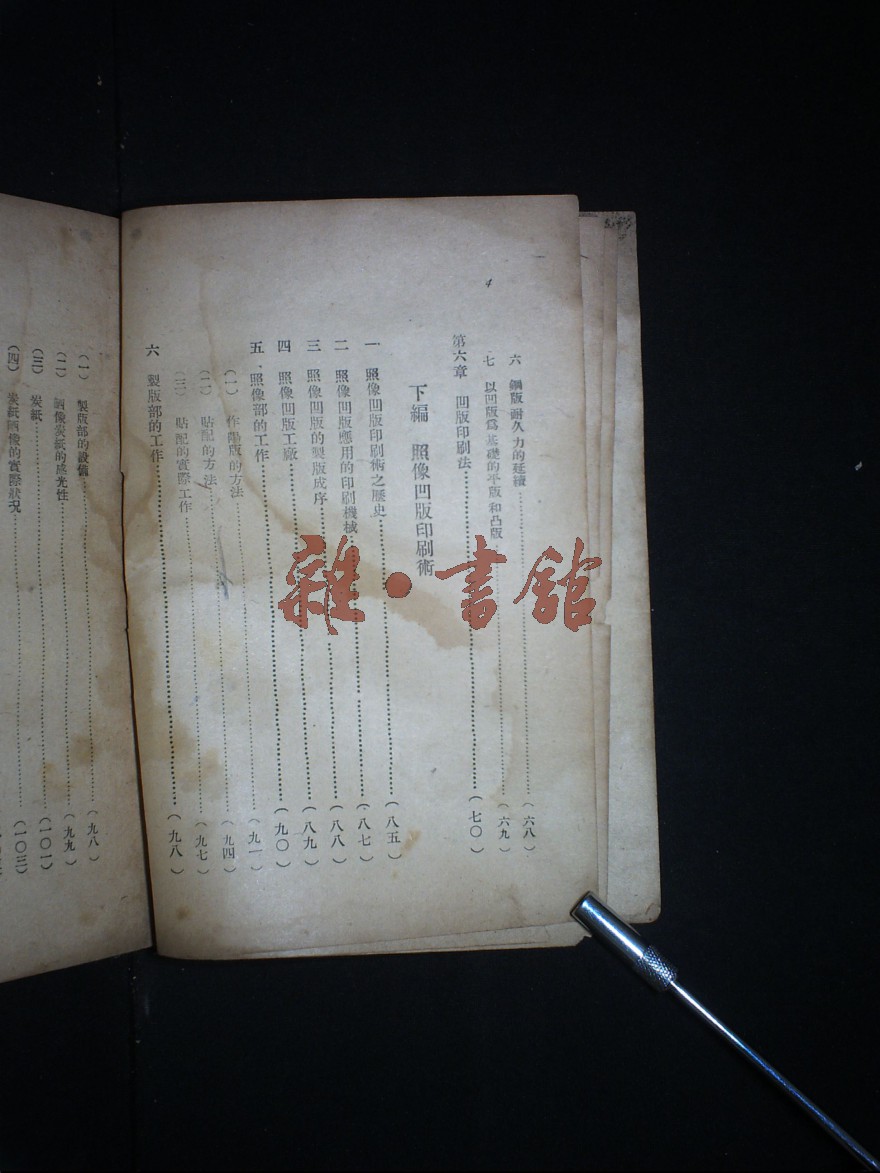 4
六 鋼版耐久力的延續 (六八)
七 以凹版爲基礎的平版和凸版 (六九)
第六章 凹版印刷法 (七〇)
下編 照像凹版印刷術
一 照像凹版印刷術之歷史 (八五)
二 照像凹版應用的印刷機械 (八七)
三 照像凹版的製版成序 (八八)
四 照像凹版工廠 (八九)
五 照像部的工作 (九〇)
(一) 作陽版的方法 (九一)
(二) 貼配的方法 (九四)
(三) 貼配的實際工作 (九七)
六 製版部的工作 (九八)
(一) 製版部的設備 (九八)
(二) 晒像炭紙的感光性 (九九)
(三) 炭紙 (一〇一)
(四) 炭紙晒像的實際狀況 (一〇三)
雜·書館